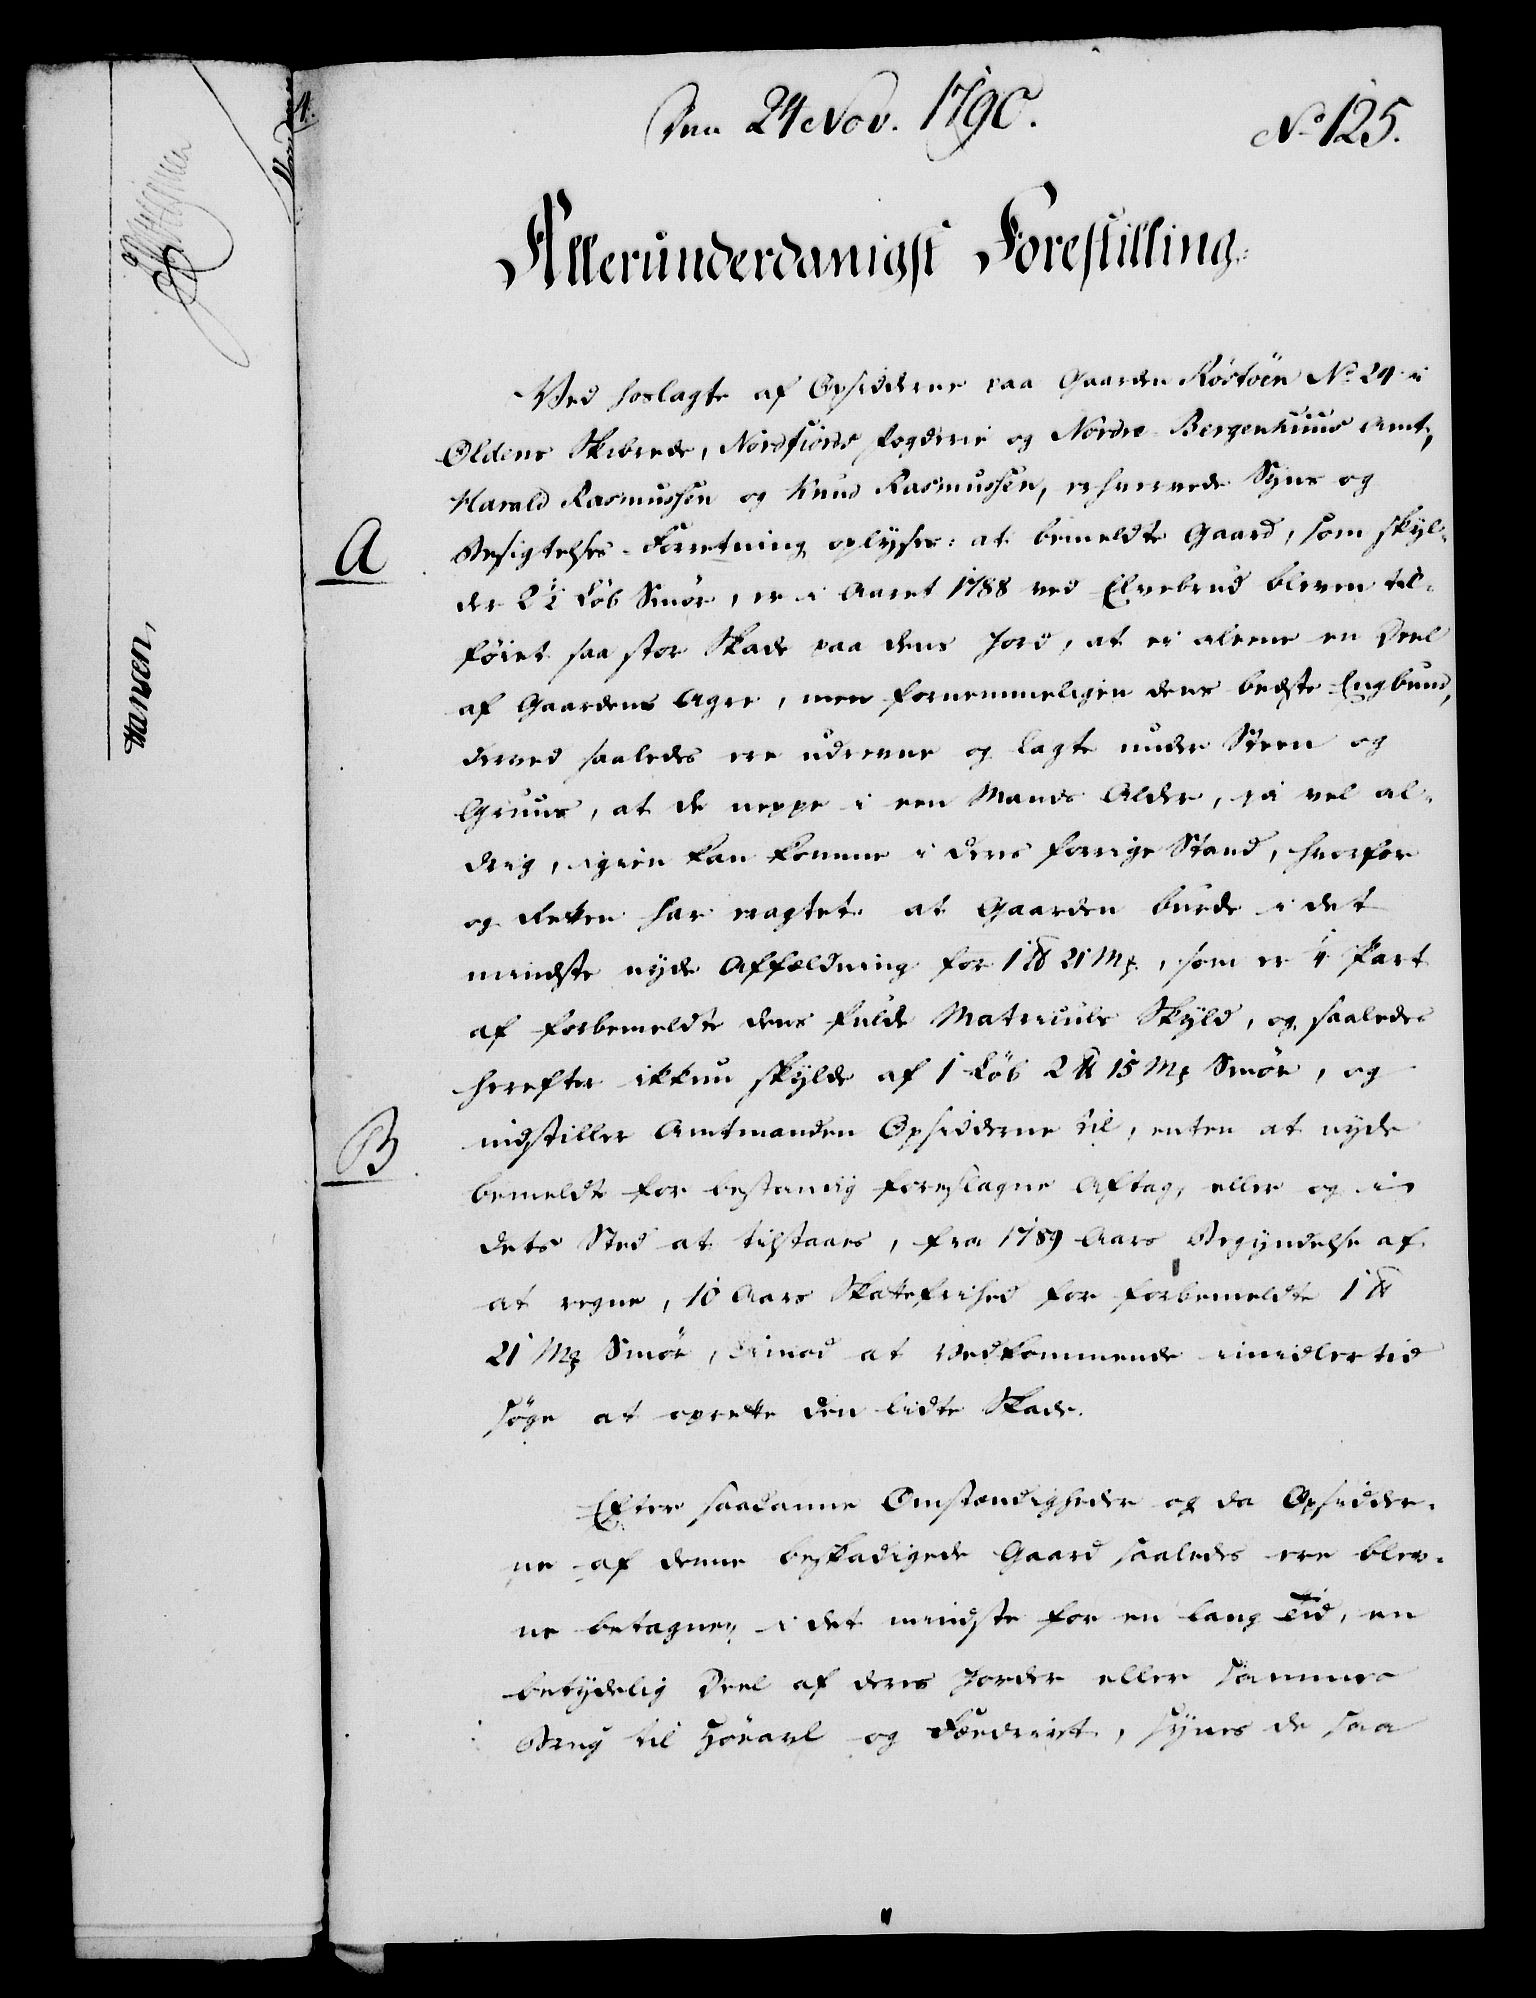 Den 24 Nov. 1790.
No 125.
Allerunderdanigst Forestilling.
Ved hoslagte af Opsidderne paa Gaarden Röstöen No 24 i
Oldens Skibrede, Nordfiords Fogderie og Nordre Bergenhuus Amt,
Harald Rasmussen og Knud Rasmussen, erhvervede Syns og
A
Besigtelses-Forretning oplyses: at bemeldte Gaard, som skyl-
der 2 1/4 Löb Smör, er i Aaret 1788 ved Elvebrud bleven til-
föiet saa stor Skade paa dens Jord, at ei alene en Deel
af Gaardens Agre, men fornemmeligen dens bedste Engbund,
derved saaledes ere udrevne og lagte under Steen og
Gruus, at de neppe i een Mands Alder, ja vel al-
drig, igien kan komme i dens forrige Stand, hvorfor
og Retten har eragtet at Gaarden burde i det
mindste nyde Affældning for 1 ℔ 21 Mk, som er 1/4 Part
af forbemeldte dens fulde Matriculs Skyld, og saaledes
herefter ikkun skylde af 1 Löb 2 ℔ 15 Mk Smör, og
B
indstiller Amtmanden Opsidderne til, enten at nyde
bemeldte for bestandig foreslagne Aftag, eller og i
dets Sted at tilstaaes, fra 1789 Aars Begyndelse af
at regne, 10 Aars Skattefrihed for forbemeldte 1 ℔
21 Mk Smör, imod at Vedkommende imidlertid
söge at oprette den lidte Skade.
Efter saadanne Omstændigheder og da Opsidder-
ne af denne beskadigede Gaard saaledes ere blev-
ne betagne, i det mindste for en lang Tid, en
betydelig Deel af deres Jorder eller sammes
Brug til Höeavl og Fædrivt, synes de saa
Hansen,